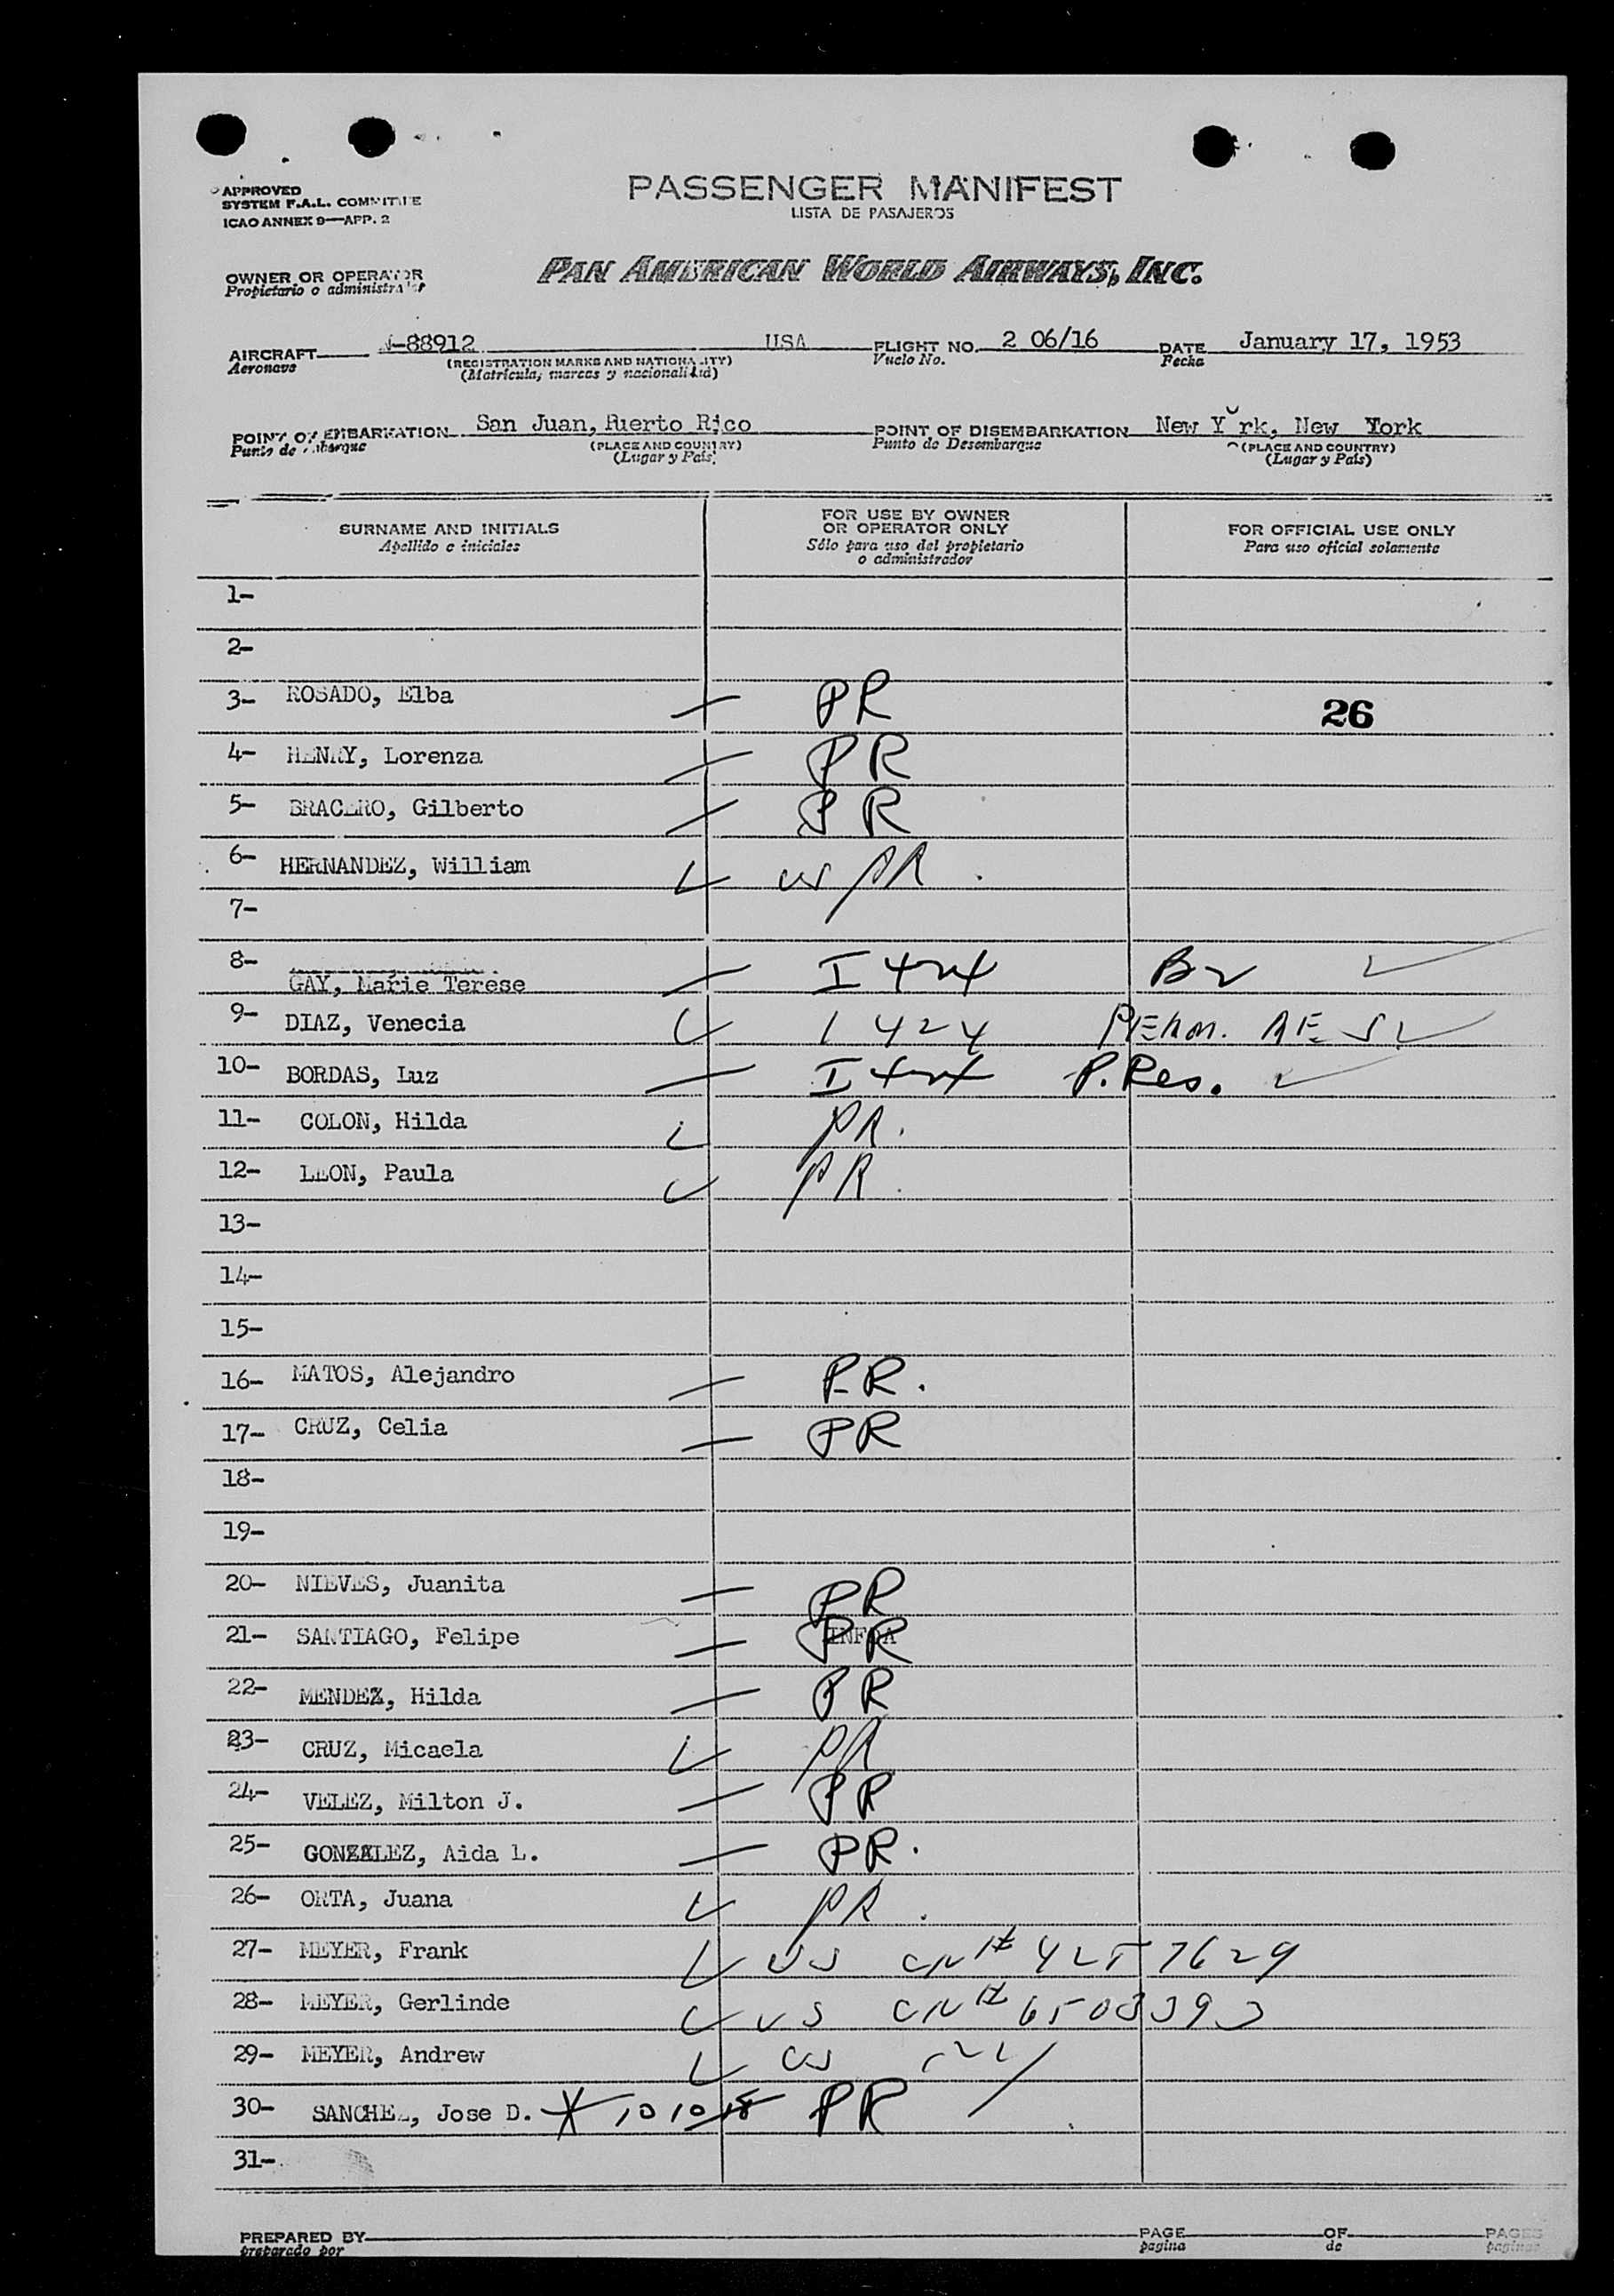 APPROVED
SYSTEM F.A.L. COMMITTEE
ICAO ANNEX 9—APP. 2
PASSENGER MANIFEST
LISTA DE PASAJEROS
OWNER OR OPERATOR
Propietario o administrador
PAN AMERICAN WORLD AIRWAYS, INC.
AIRCRAFT N-88912 USA FLIGHT NO. 2 06/16 DATE January 17, 1953
Aeronave (REGISTRATION MARKS AND NATIONALITY) Vuelo No. Fecha
(Matrícula, marcas y nacionalidad)
POINT OF EMBARKATION San Juan, Puerto Rico POINT OF DISEMBARKATION New Y rk, New York
Punto de Embarque (PLACE AND COUNTRY) Punto de Desembarque (PLACE AND COUNTRY)
(Lugar y País) (Lugar y País)
SURNAME AND INITIALS FOR USE BY OWNER OR OPERATOR ONLY FOR OFFICIAL USE ONLY
Apellido e iniciales Sólo para uso del propietario o administrador Para uso oficial solamente
1-
2-
3- ROSADO, Elba PR 26
4- HENRY, Lorenza PR
5- BRACERO, Gilberto PR
6- HERNANDEZ, William US PR.
7-
8- GAY, Marie Terese I 424 B2
9- DIAZ, Venecia I 424 PERM. RES
10- BORDAS, Luz I 424 P.Res.
11- COLON, Hilda PR.
12- LEON, Paula PR.
13-
14-
15-
16- MATOS, Alejandro P.R.
17- CRUZ, Celia PR
18-
19-
20- NIEVES, Juanita PR
21- SANTIAGO, Felipe PR
22- MENDEZ, Hilda PR
23- CRUZ, Micaela PR
24- VELEZ, Milton J. PR
25- GONZALEZ, Aida L. PR.
26- ORTA, Juana PR.
27- MEYER, Frank US CN# 4257629
28- MEYER, Gerlinde US CN# 6503393
29- MEYER, Andrew US
30- SANCHEZ, Jose D. PR
31-
PREPARED BY PAGE OF PAGES
preparado por pagina de paginas